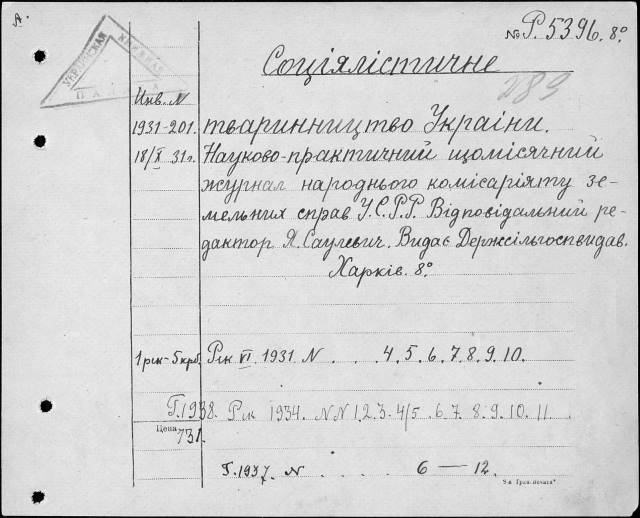 А.
№ Р. 5396. 8°
УКРАИНСКАЯ КНИЖНАЯ ПАЛАТА
Соціялістичне
289
Инв. N
1931-201. тваринництво України.
18/X 31г. Науково-практичний щомісячний
журнал народнього комісаріяту зе-
мельних справ У.С.Р.Р. Відповідальний ре-
дактор Я. Саулевич. Видає Держсільгоспвидав.
Харків. 8°.
1 рік-5 крб. Рік VI. 1931. N . . . 4. 5. 6. 7. 8. 9. 10.
Г. 1938. Рік 1934. NN 1. 2. 3. 4/5 . 6. 7. 8. 9. 10. 11.
Цена
731.
Г. 1937. N . . . 6 — 12.